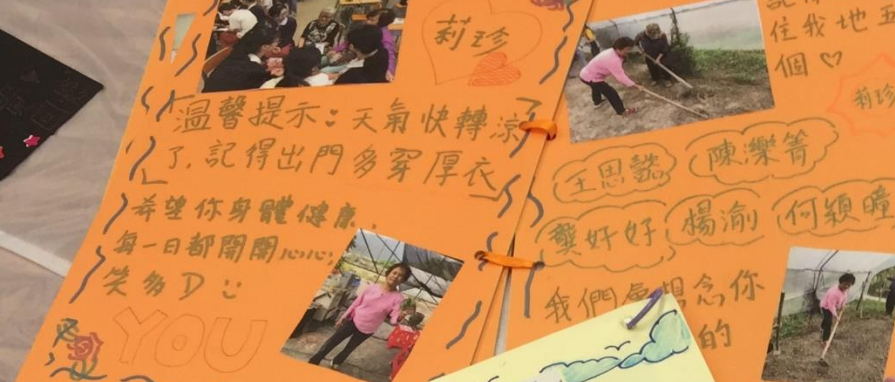 莉珍
溫馨提示：天氣快轉涼
了，記得出門多穿厚衣
希望你身體健康，
每一日都開開心心，
笑多D :)
YOU
住我地五
個♡
莉珍
王思懿
陳濼箐
龔好好
楊渝
何穎曈
我們會想念你
的